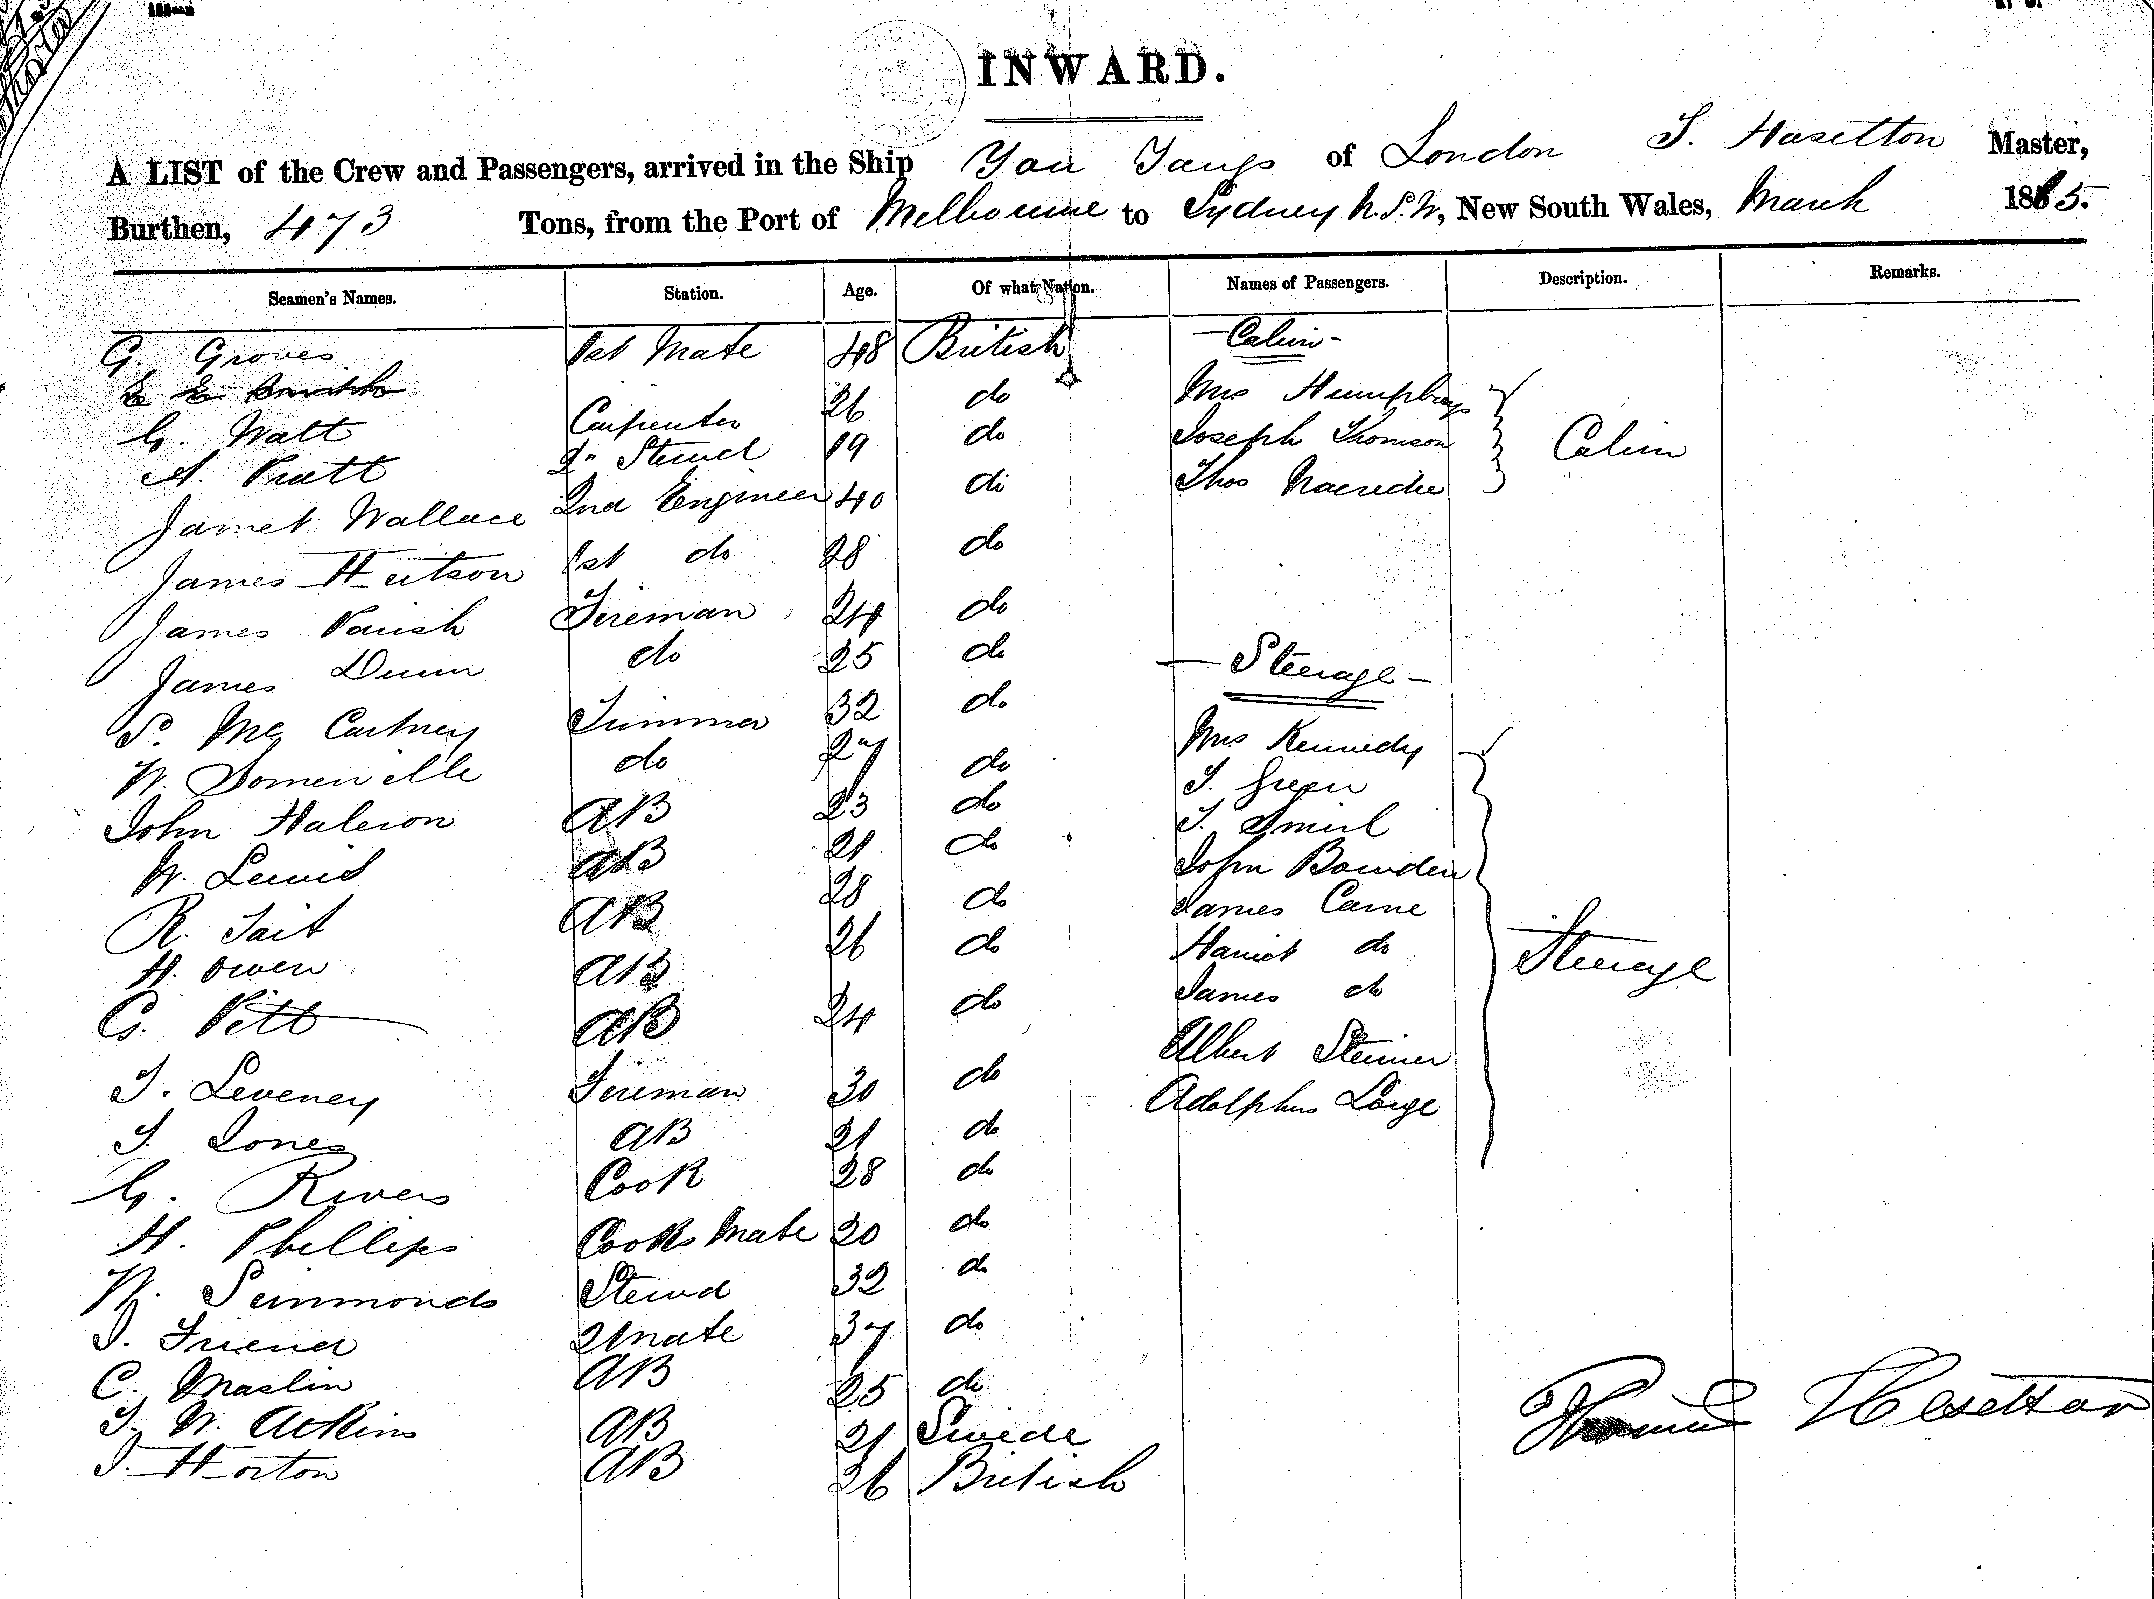 INWARD.
A LIST of the Crew and Passengers, arrived in the Ship You Yangs of London T. Haselton Master,
Burthen, 473 Tons, from the Port of Melbourne to Sydney N.S.W, New South Wales, March 1885.
Seamen's Names. Station. Age. Of what Nation. Names of Passengers. Description. Remarks.
G. Groves 1st Mate 48 British - Cabin -
G. Watt Carpenter 26 do Mrs Humphreys
A. Pratt 2n Stewd 19 do Joseph Thomson Cabin
James Wallace 2nd Engineer 40 do Thos
James Hutson 1st do 28 do
James Parish Fireman 24 do
James Dunn do 25 do - Steerage -
S. Mc Cartney Trimmer 32 do
W. Somerville do 27 do Mrs Kennedy
John Halcron AB 23 do T. Green
W. Lewis AB 21 do
R. Tait AB 28 do John Bowden
H. Owen AB 26 do James Carne
G. Pitt AB 24 do Harriot do Steerage
James do
T. Leveney Fireman 30 do Albert Steiner
J. Jones AB 21 do Adolphus Lorge
G. Rivers Cook 28 do
H. Phillips Cooks Mate 20 do
W. Simmonds Stewd 32 do
J. Friend 2 Mate 37 do
C. Maslin AB 25 do
J. W. Adkins AB 21 Swede
J. Horton AB 26 British
Thomas Haselton